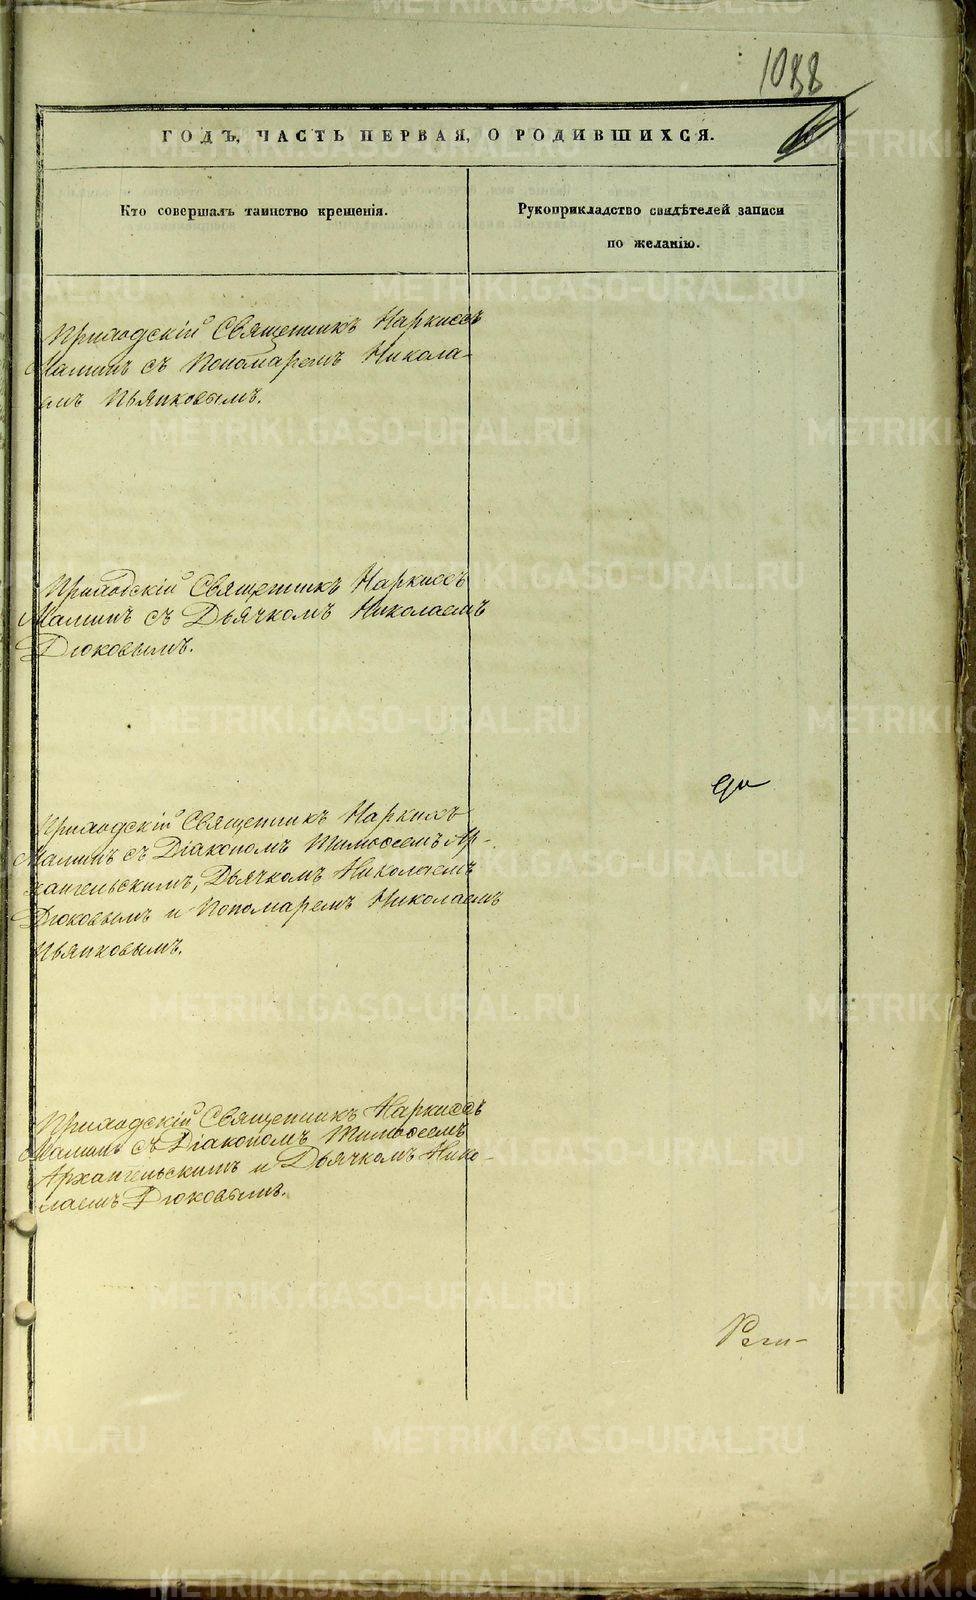 1088
ГОДЪ, ЧАСТЬ ПЕРВАЯ, О РОДИВШИХСЯ.
Кто совершалъ таинство крещенія.
Рукоприкладство свидѣтелей записи
по желанію.
Приходскій Священникъ Наркиссъ
Маминъ съ Пономаремъ Никола-
емъ Пьянковымъ.
Приходскій Священникъ Наркиссъ
Маминъ съ Дьячкомъ Николаемъ
Дюковымъ.
Приходскій Священникъ Наркиссъ
Маминъ съ Діакономъ Тимоѳеемъ Ар-
хангельскимъ, Дьячкомъ Николаемъ
Дюковымъ и Пономаремъ Николаемъ
Пьянковымъ.
Приходскій Священникъ Наркиссъ
Маминъ съ Діакономъ Тимоѳеемъ
Архангельскимъ и Дьячкомъ Нико-
лаемъ Дюковымъ.
METRIKI.GASO-URAL.RU